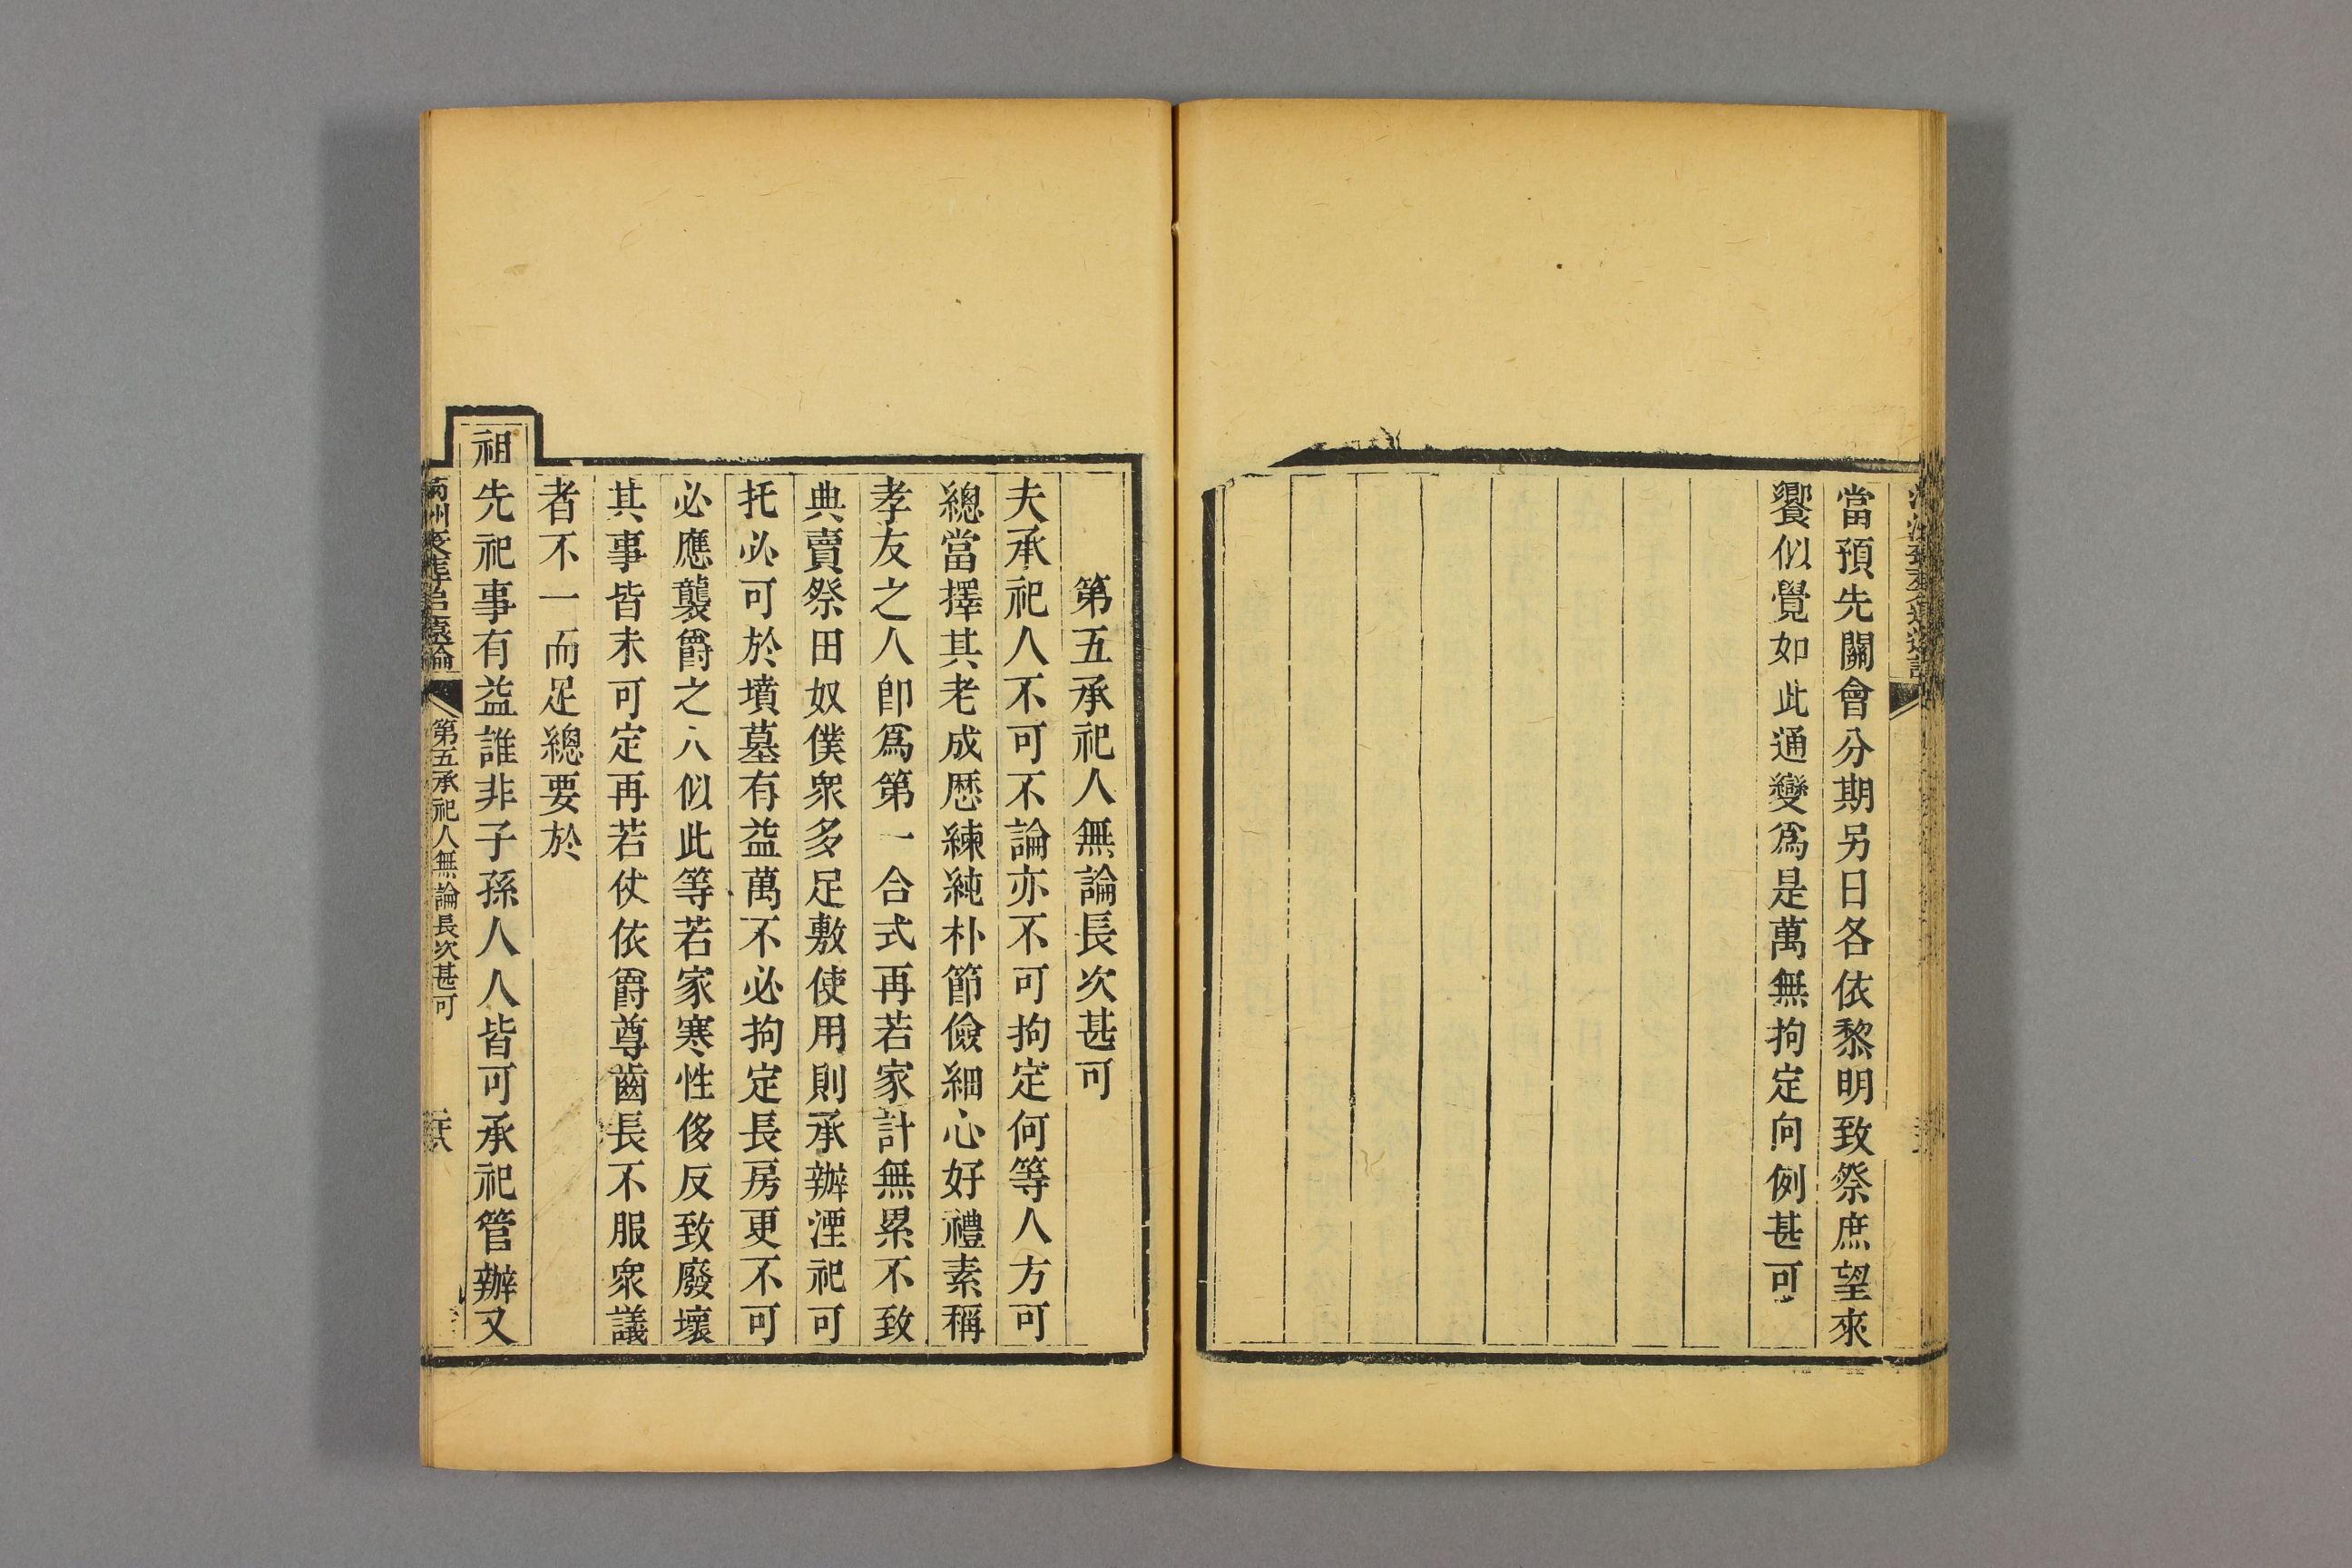 當預先關會分期另日各依黎明致祭庶望來
饗似覺如此通變爲是萬無拘定向例甚可
第五承祀人無論長次甚可
夫承祀人不可不論亦不可拘定何等人方可
總當擇其老成歷練純朴節儉細心好禮素稱
孝友之人卽爲第一合式再若家計無累不致
典賣祭田奴僕衆多足敷使用則承辦湮祀可
托必可於墳墓有益萬不必拘定長房更不可
必應襲爵之人似此等若家寒性侈反致廢壞
其事皆未可定再若仗依爵尊齒長不服衆議
者不一而足總要於
祖先祀事有益誰非子孫人人皆可承祀管辦又
第五承祀人無論長次甚可